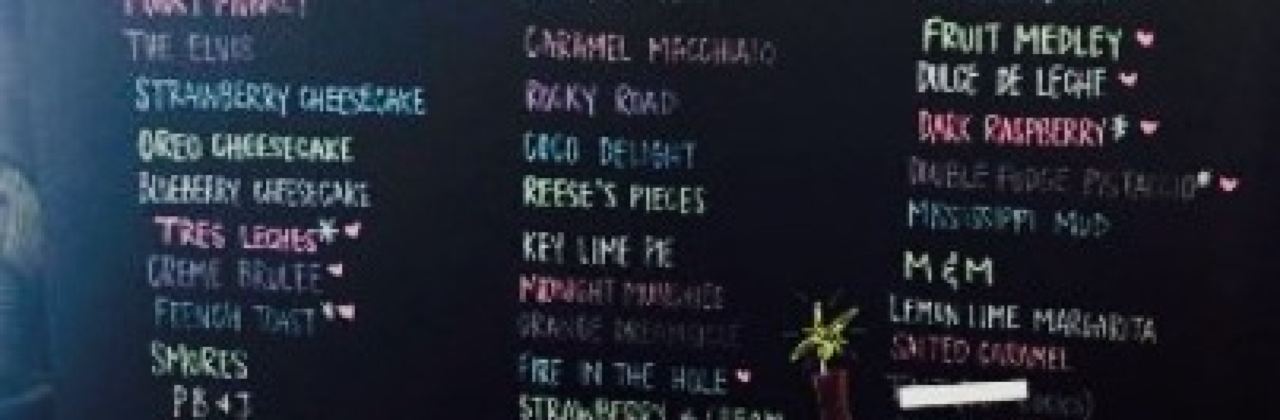 FUNKY MONKEY
THE ELVIS
STRAWBERRY CHEESECAKE
OREO CHEESECAKE
BLUEBERRY CHEESECAKE
TRES LECHES*
CREME BRULEE
FRENCH TOAST*
SMORES
PB & J
CARAMEL MACCHIATO
ROCKY ROAD
COCO DELIGHT
REESE'S PIECES
KEY LIME PIE
MIDNIGHT MUNCHIE
ORANGE DREAMSICLE
FIRE IN THE HOLE
STRAWBERRY & CREAM
FRUIT MEDLEY
DULCE DE LECHE
DARK RASPBERRY*
DOUBLE FUDGE PISTACCIO*
MISSISSIPPI MUD
M & M
LEMON LIME MARGARITA
SALTED CARAMEL